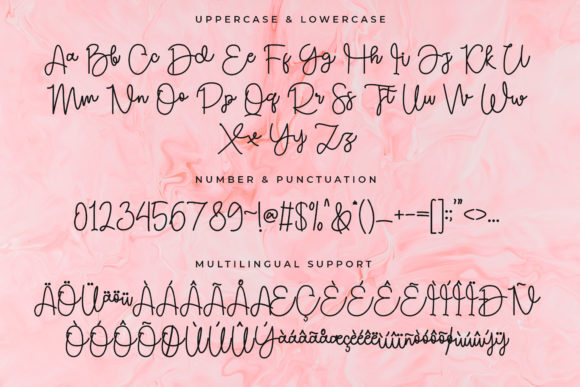 UPPERCASE & LOWERCASE
Aa Bb Cc Dd Ee Ff Gg Hh Ii Jj Kk Ll
Mm Nn Oo Pp Qq Rr Ss Tt Uu Vv Ww
Xx Yy Zz
NUMBER & PUNCTUATION
0123456789~!@#$%^&*()_+-=[]:;'"<>...
MULTILINGUAL SUPPORT
ÄÖÜäöüÀÁÂÃÅÆÇÈÉÊËÌÍÎÏÐÑ
ÒÓÔÕØÙÚÛÝàáâãåæçèéêëìíîïñòóôõøùúûýÿ